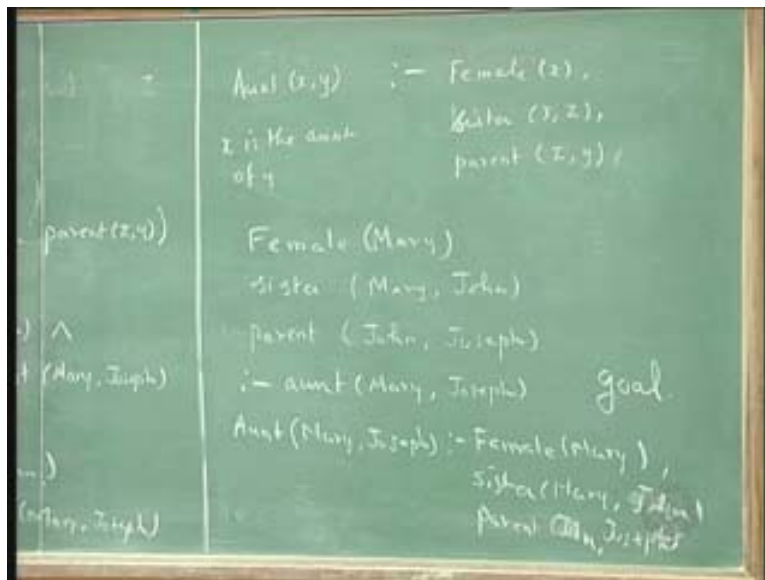 parent(z,y))
) ∧
(Mary, Joseph)
)
(Mary, Joseph)
Aunt (x,y) :- Female (x),
sister (x,z),
x is the aunt
of y
parent (z,y),
Female (Mary)
sister (Mary, John)
parent (John, Joseph)
:- aunt (Mary, Joseph) goal.
Aunt (Mary, Joseph) :- Female (Mary),
sister (Mary, John)
Parent Joseph